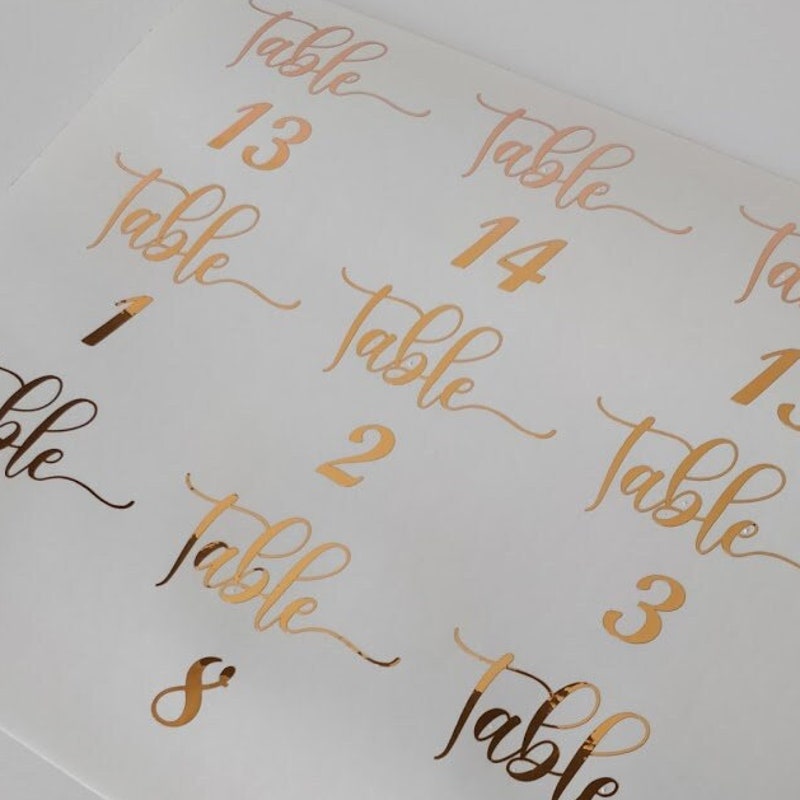 Table
13
Table
14
Table
1
Table
2
Table
3
Table
8
Table